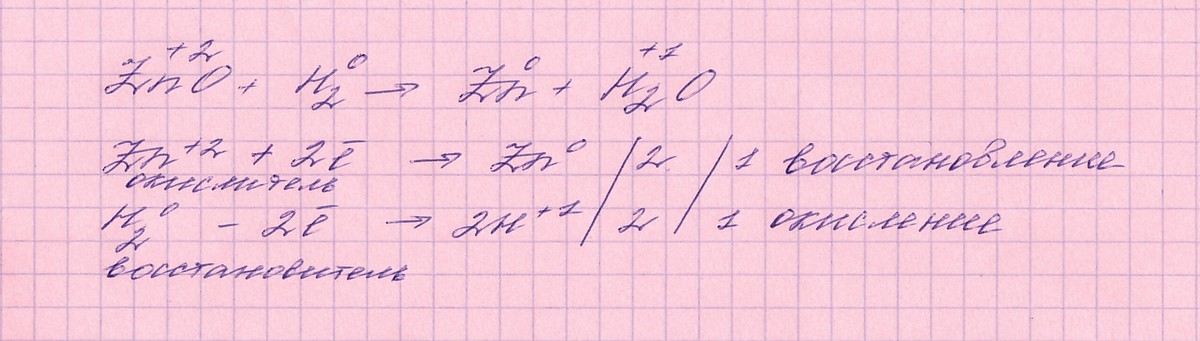 Zn⁺²O + H₂⁰ → Zn⁰ + H₂⁺¹O
Zn⁺² + 2ē → Zn⁰ / 2 / 1 восстановление
окислитель
H₂⁰ - 2ē → 2H⁺¹ / 2 / 1 окисление
восстановитель